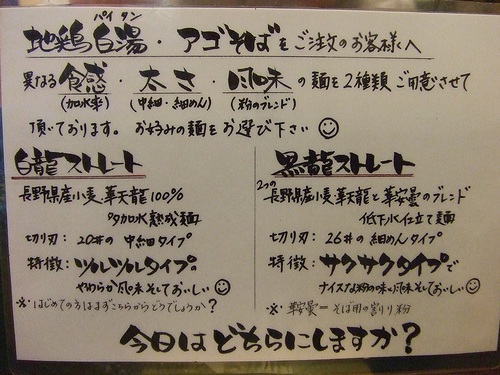 パイタン
地鶏白湯・アゴそばをご注文のお客様へ
異なる食感・太さ・風味の麺を2種類ご用意させて
(加水率) (中細・細めん) (粉のブレンド)
頂いております。お好みの麺をお選び下さい
白龍ストレート
長野県産小麦、華天龍100%
多加水熟成麺
切り刃: 20#の中細タイプ
特徴: ツルツルタイプの
やわらか風味そしておいしい
※はじめての方はまずこちらからどうでしょうか?
黒龍ストレート
2つの
長野県産小麦、華天龍と華安曇のブレンド
低下水仕立て麺
切り刃: 26#の細めんタイプ
特徴: サクサクタイプで
ナイスな粉の味、風味そしておいしい
※ 華安曇=そば用の割り粉
今日はどちらにしますか?